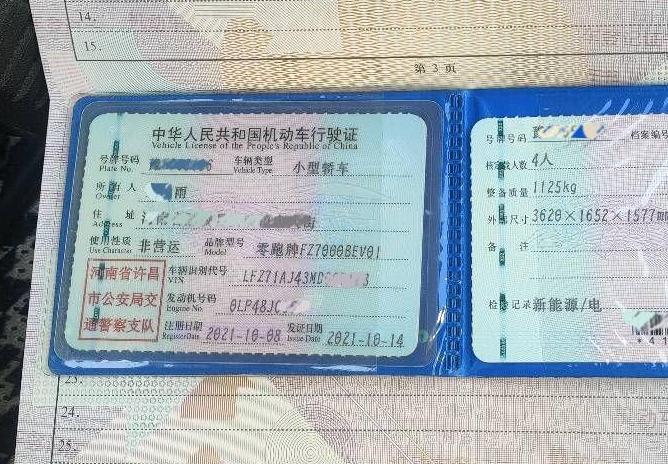 14.
15.
第 3 页
中华人民共和国机动车行驶证
Vehicle License of the People's Republic of China
号牌号码 Plate No. 车辆类型 Vehicle Type 小型轿车
所有人 Owner 雨
住址 Address 街
使用性质 Use Character 非营运 品牌型号 Model 零跑牌FZ7000BEV01
河南省许昌市公安局交通警察支队
车辆识别代号 VIN LFZ71AJ43MD
发动机号码 Engine No. 0LP48JC
注册日期 Register Date 2021-10-08 发证日期 Issue Date 2021-10-14
号牌号码 档案编号
核定载人数 4人
整备质量 1125kg
外廓尺寸 3620×1652×1577
备注
检验记录 新能源/电
23.
24.
25.